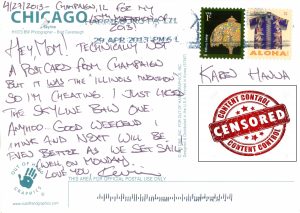 4/27/2013 - CHAMPAIGN, IL FOR MY
2013!
CHICAGO
Skyline
29 APR 2013 PM 6 L
ALOHA
HEY MOM! TECHNICALLY NOT
A POSTCARD FROM CHAMPAIGN
BUT IT WAS THE ILLINOIS MARATHON
SO I'M CHEATING. I JUST LIKED
THE SKYLINE BAW ONE.
ANYHOO. GOOD WEEKEND
I THINK AND NEXT WILL BE
EVEN BETTER AS WE SET SAIL
(WELL, ON MONDAY)...
LOVE YOU, Kevin
KAREN HANNA
CONTENT CONTROL
CENSORED
CONTENT CONTROL
OUT OF
GRAPHICS
THIS AREA FOR OFFICIAL POSTAL USE ONLY